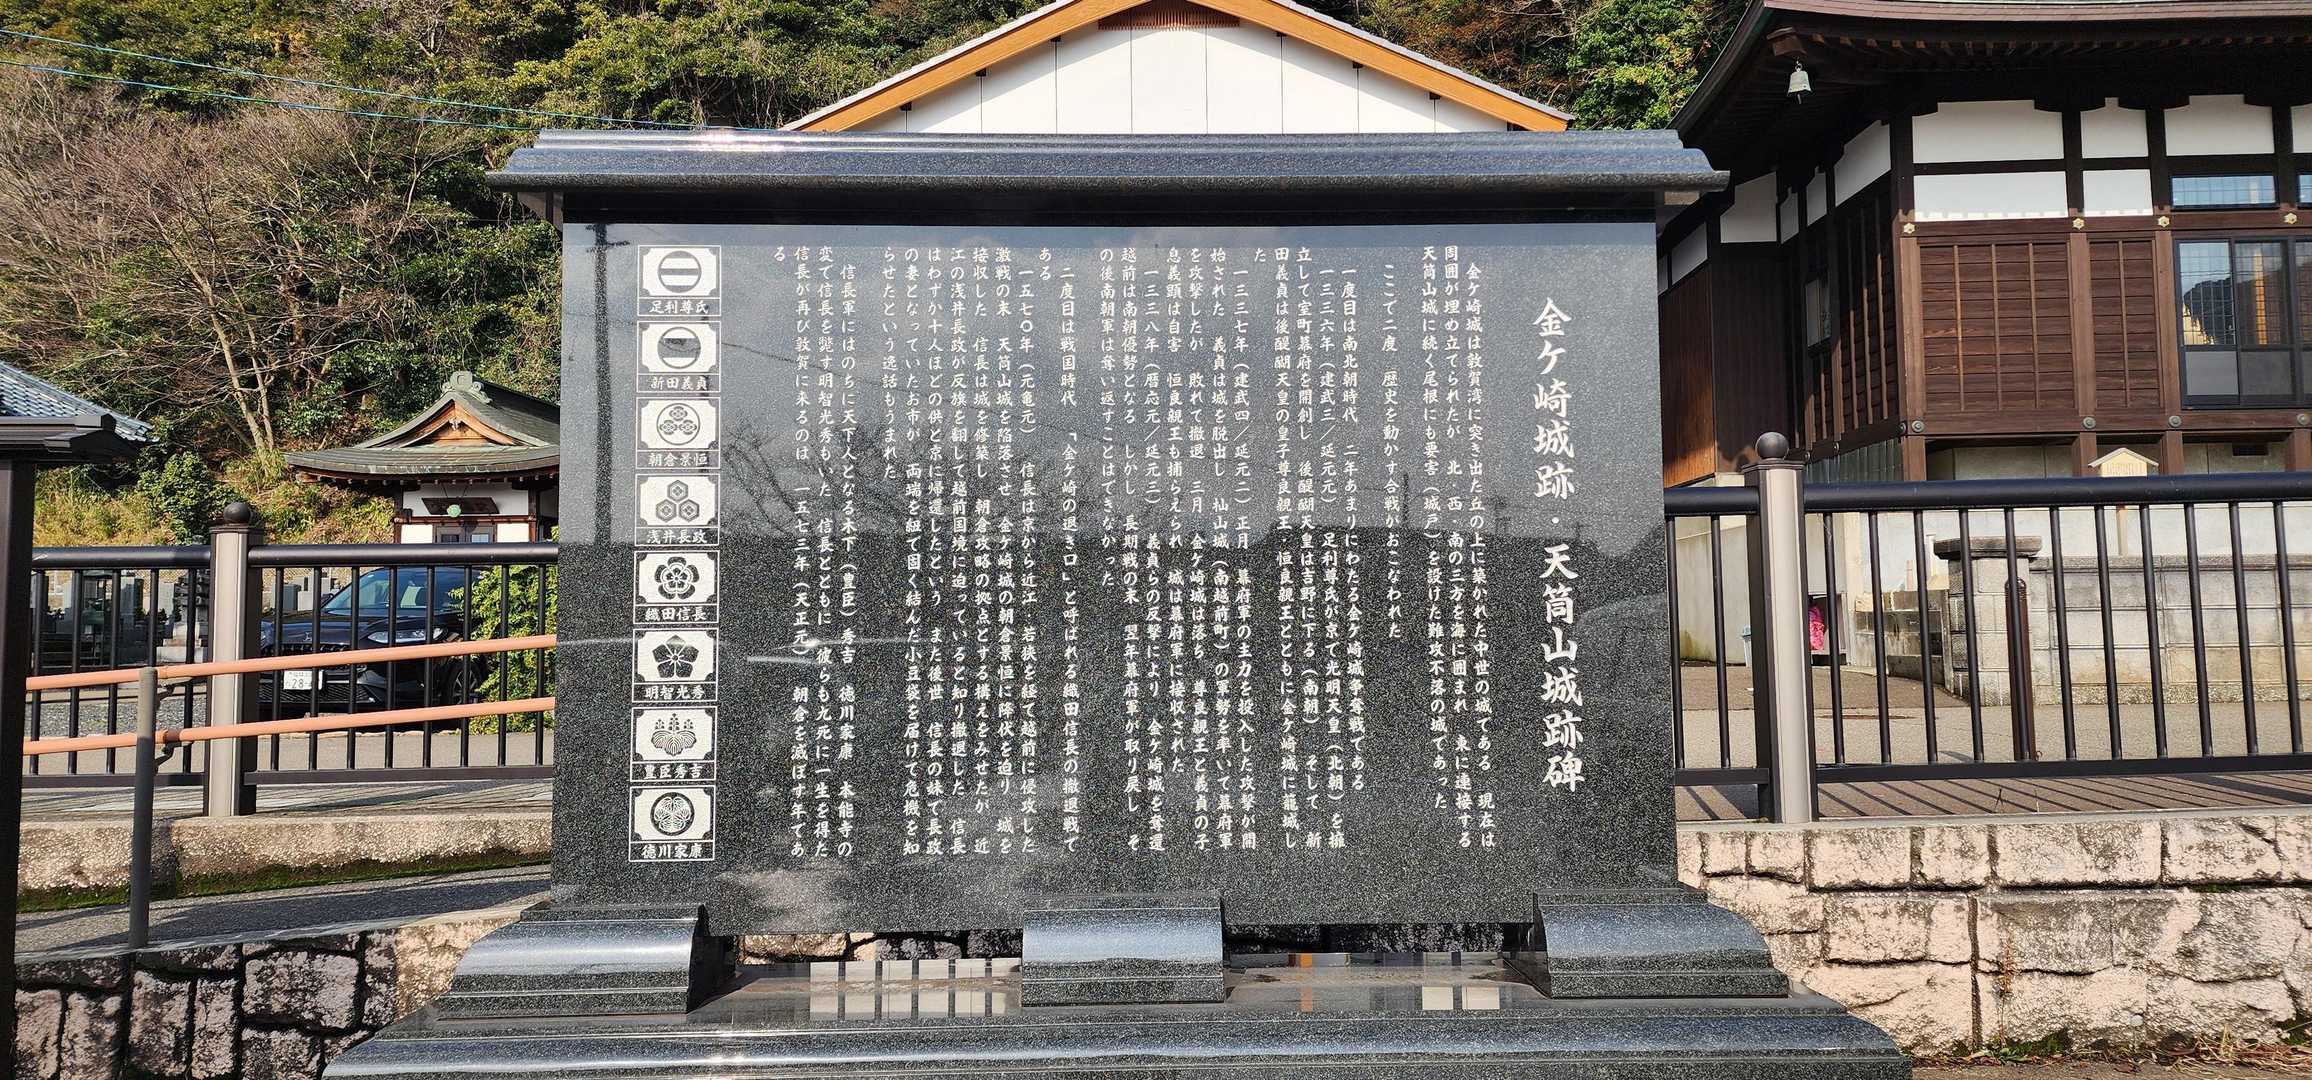 金ケ崎城跡・天筒山城跡碑
金ケ崎城は敦賀湾に突き出た丘の上に築かれた中世の城である　現在は
周囲が埋め立てられたが　北・西・南の三方を海に囲まれ　東に連接する
天筒山城に続く尾根にも要害（城戸）を設けた難攻不落の城であった
ここで二度　歴史を動かす合戦がおこなわれた
一度目は南北朝時代　二年あまりにわたる金ケ崎城争奪戦である
一三三六年（建武三／延元元）　足利尊氏が京で光明天皇（北朝）を擁
立して室町幕府を開創し　後醍醐天皇は吉野に下る（南朝）　そして　新
田義貞は後醍醐天皇の皇子尊良親王・恒良親王とともに金ケ崎城に籠城し
た
一三三七年（建武四／延元二）正月　幕府軍の主力を投入した攻撃が開
始された　義貞は城を脱出し　杣山城（南越前町）の軍勢を率いて幕府軍
を攻撃したが　敗れて撤退　三月　金ケ崎城は落ち　尊良親王と義貞の子
息義顕は自害　恒良親王も捕らえられ　城は幕府軍に接収された
一三三八年（暦応元／延元三）　義貞らの反撃により　金ケ崎城を奪還
越前は南朝優勢となる　しかし　長期戦の末　翌年幕府軍が取り戻し　そ
の後南朝軍は奪い返すことはできなかった
二度目は戦国時代　「金ケ崎の退き口」と呼ばれる織田信長の撤退戦で
ある
一五七〇年（元亀元）　信長は京から近江・若狭を経て越前に侵攻した
激戦の末　天筒山城を陥落させ　金ケ崎城の朝倉景恒に降伏を迫り　城を
接収した　信長は城を修築し　朝倉攻略の拠点とする構えをみせたが　近
江の浅井長政が反旗を翻して越前国境に迫っていると知り撤退した　信長
はわずか十人ほどの供と京に帰還したという　また後世　信長の妹で長政
の妻となっていたお市が　両端を紐で固く結んだ小豆袋を届けて危機を知
らせたという逸話もうまれた
信長軍にはのちに天下人となる木下（豊臣）秀吉　徳川家康　本能寺の
変で信長を斃す明智光秀もいた　信長とともに　彼らも九死に一生を得た
信長が再び敦賀に来るのは　一五七三年（天正元）　朝倉を滅ぼす年であ
る
足利尊氏
新田義貞
朝倉景恒
浅井長政
織田信長
明智光秀
豊臣秀吉
徳川家康